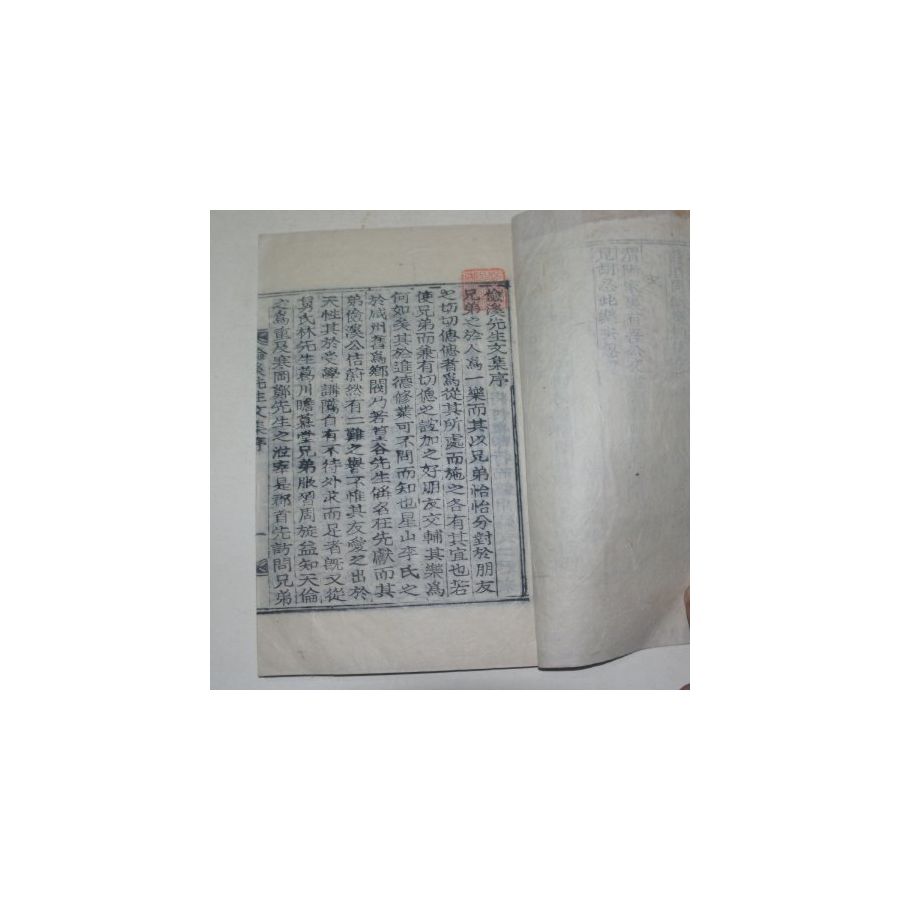 儉溪先生文集序
兄弟之於人爲一樂而其以兄弟怡怡分對於朋友
之切切偲偲者爲從其所處而施之各有其宜也若
使兄弟而兼有切偲之諠加之好朋友交輔其樂爲
何如矣其於進德修業可不問而知也星山李氏之
於咸州者爲鄕閥乃若篁谷先生偁名在先獻而其
弟儉溪公佶蔚然有二難之譽不惟其友愛之出於
天性其於之學講隲自有不待外求而足者旣又從
舅氏林先生葛川瞻慕堂兄弟服習周旋益知天倫
之爲重及寒岡鄭先生之涖宰是郡首先訪問兄弟
儉溪先生文集序
一